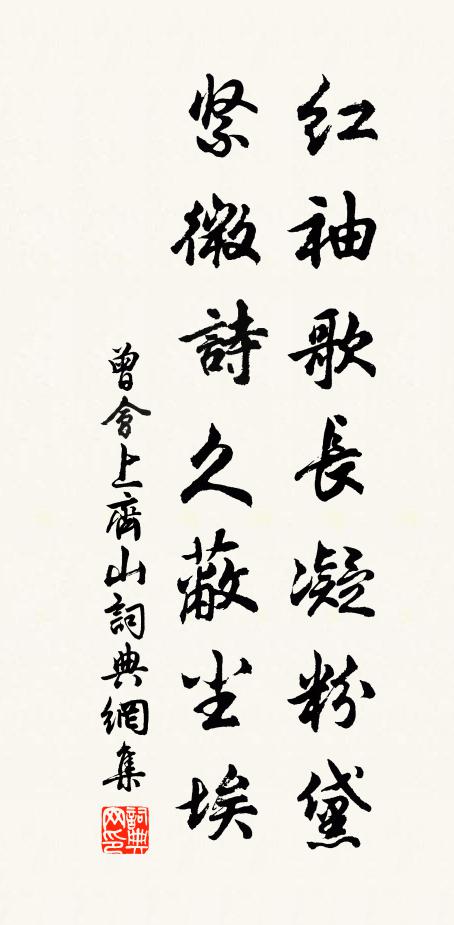 红袖歌長凝粉黛
紫微詩久蔽尘埃
曾會上齊山詞典網集
詞典网印